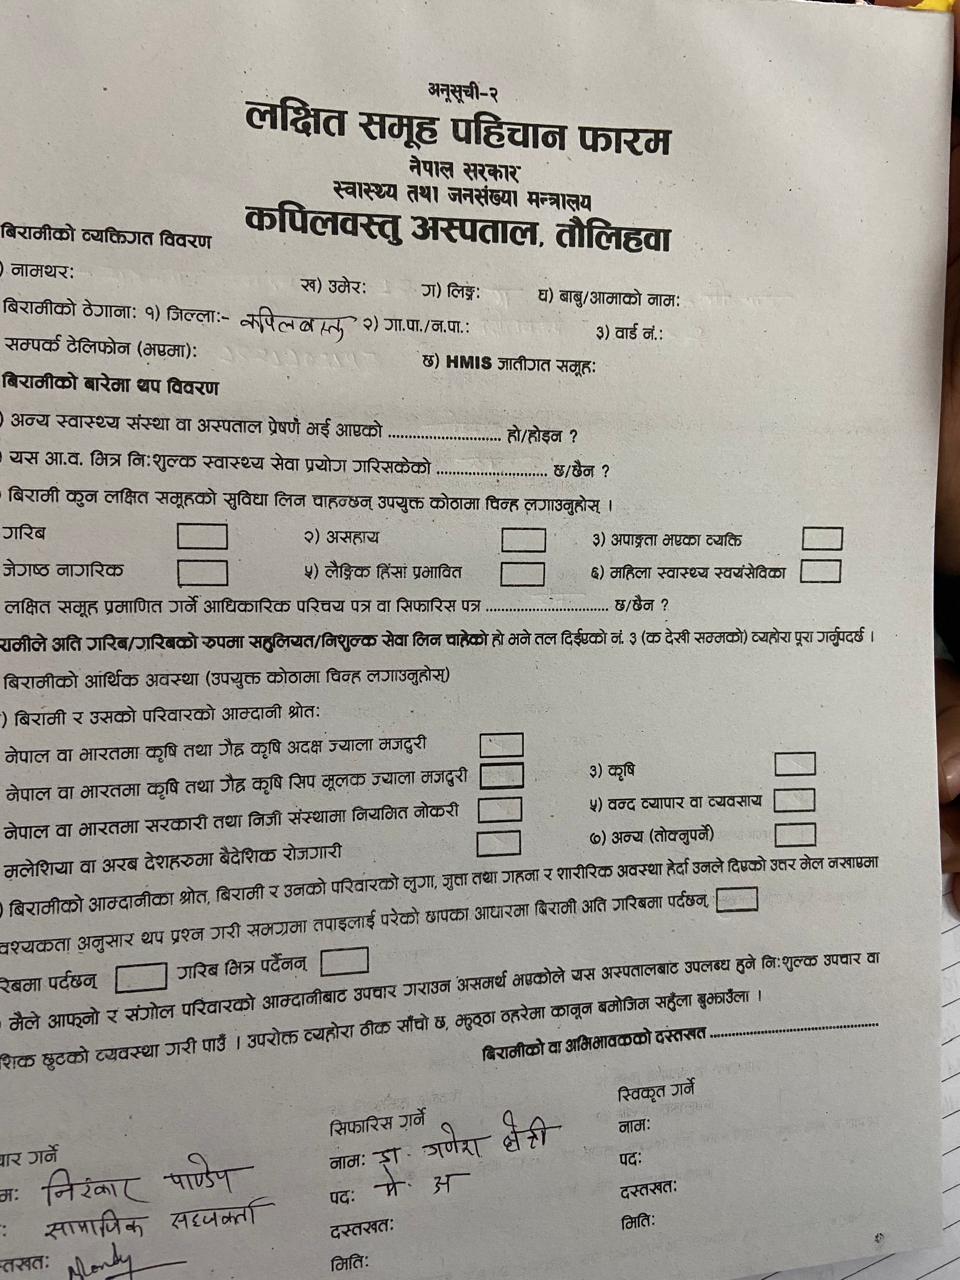 अनूसूची-२
लक्षित समूह पहिचान फारम
नेपाल सरकार
स्वास्थ्य तथा जनसंख्या मन्त्रालय
कपिलवस्तु अस्पताल, तौलिहवा
बिरामीको व्यक्तिगत विवरण
) नामथर: ख) उमेर: ग) लिङ्ग: घ) बाबु/आमाको नाम:
बिरामीको ठेगाना: १) जिल्ला:- कपिलवस्तु २) गा.पा./न.पा.: ३) वार्ड नं.:
सम्पर्क टेलिफोन (भएमा): छ) HMIS जातीगत समूह:
बिरामीको बारेमा थप विवरण
) अन्य स्वास्थ्य संस्था वा अस्पताल प्रेषण भई आएको ........................... हो/होइन ?
यस आ.व. भित्र नि:शुल्क स्वास्थ्य सेवा प्रयोग गरिसकेको ........................... छ/छैन ?
बिरामी कुन लक्षित समूहको सुविधा लिन चाहन्छन् उपयुक्त कोठामा चिन्ह लगाउनुहोस् ।
गरिब २) असहाय ३) अपाङ्गता भएका व्यक्ति
जेगष्ठ नागरिक ५) लैङ्गिक हिंसा प्रभावित ६) महिला स्वास्थ्य स्वयंसेविका
लक्षित समूह प्रमाणित गर्ने आधिकारिक परिचय पत्र वा सिफारिस पत्र .............................. छ/छैन ?
रामीले अति गरिब/गरिबको रुपमा सहुलियत/निशुल्क सेवा लिन चाहेको हो भने तल दिईएको नं. ३ (क देखी सम्मको) व्यहोरा पूरा गर्नुपर्दछ ।
बिरामीको आर्थिक अवस्था (उपयुक्त कोठामा चिन्ह लगाउनुहोस्)
) बिरामी र उसको परिवारको आम्दानी श्रोत:
नेपाल वा भारतमा कृषि तथा गैह्र कृषि अदक्ष ज्याला मजदुरी
नेपाल वा भारतमा कृषि तथा गैह्र कृषि सिप मूलक ज्याला मजदुरी ३) कृषि
नेपाल वा भारतमा सरकारी तथा निजी संस्थामा नियमित नोकरी ५) वन्द व्यापार वा व्यवसाय
मलेशिया वा अरब देशहरुमा बैदेशिक रोजगारी ७) अन्य (तोक्नुपर्ने)
) बिरामीको आम्दानीका श्रोत, बिरामी र उनको परिवारको लुगा, जुत्ता तथा गहना र शारीरिक अवस्था हेर्दा उनले दिएको उत्तर मेल नखाएमा
वश्यकता अनुसार थप प्रश्न गरी समग्रमा तपाइलाई परेको छापका आधारमा बिरामी अति गरिबमा पर्दछन्
रिबमा पर्दछन् गरिब भित्र पर्दैनन्
मैले आफ्नो र संगोल परिवारको आम्दानीबाट उपचार गराउन असमर्थ भएकोले यस अस्पतालबाट उपलब्ध हुने नि:शुल्क उपचार वा
शिक छुटको व्यवस्था गरी पाउँ । उपरोक्त व्यहोरा ठीक साँचो छ, झुठ्ठा ठहरेमा कानून बमोजिम सहुँला बुझाउँला ।
बिरामीको वा अभिभावकको दस्तखत ........................................
यार गर्ने सिफारिस गर्ने स्विकृत गर्ने
म: निरंकार पाण्डेय नाम: डा. गणेश क्षेत्री नाम:
: सामाजिक सहजकर्ता पद: मे. अ पद:
स्तखत: दस्तखत: दस्तखत:
मिति: मिति: